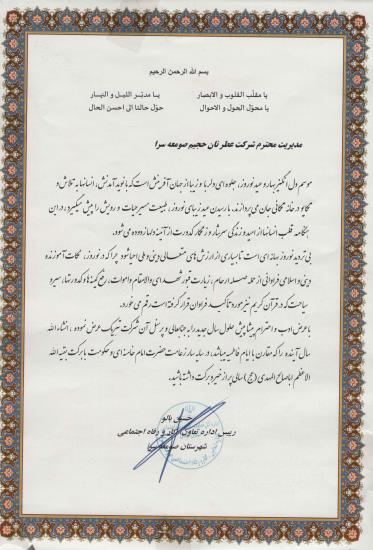 بسم الله الرحمن الرحیم
یا مقلب القلوب و الابصار یا مدبّر اللیل و النهار
یا محوّل الحول و الاحوال حوّل حالنا الی احسن الحال
مدیریت محترم شرکت عطر نان حجیم صومعه سرا
موسم دل انگیز بهار و عید نوروز، جلوه ای دلربا و زیبا از جهان آفرینش است که با نوید آمدنش، انسانها به تلاش و
تکاپو در خانه تکانی جان می پردازند. با رسیدن عید زیبای نوروز، طبیعت مسیر حیات و رویش را پیش میگیرد، در این
هنگامه قلب انسانها از امید و زندگی سرشار و زنگار کدورت از آئینه دلها زدوده می شود.
بی تردید نوروز بهانه ای است تا بسیاری از ارزش های متعالی دینی و ملی احیا شود چرا که در نوروز، نکات آموزنده
دینی و اسلامی فراوانی از جمله صله ارحام، زیارت قبور شهدای والامقام و اموات، رفع کینه ها و کدورتها، سیر و
سیاحت که در قرآن کریم نیز مورد تاکید فراوان قرار گرفته است رقم می خورد.
با عرض ادب و احترام پیشاپیش حلول سال جدید را به جنابعالی و پرسنل آن شرکت تبریک عرض نموده، انشاءالله
سال آینده را که مقارن با ایام فاطمیه میباشد، در سایه سار زعامت حضرت امام خامنه ای و حکومت با برکت بقیه الله
الاعظم اباصالح المهدی (عج) سالی پر از خیر و برکت داشته باشید.
حسن بالو
رییس اداره تعاون، کار و رفاه اجتماعی
شهرستان صومعه سرا